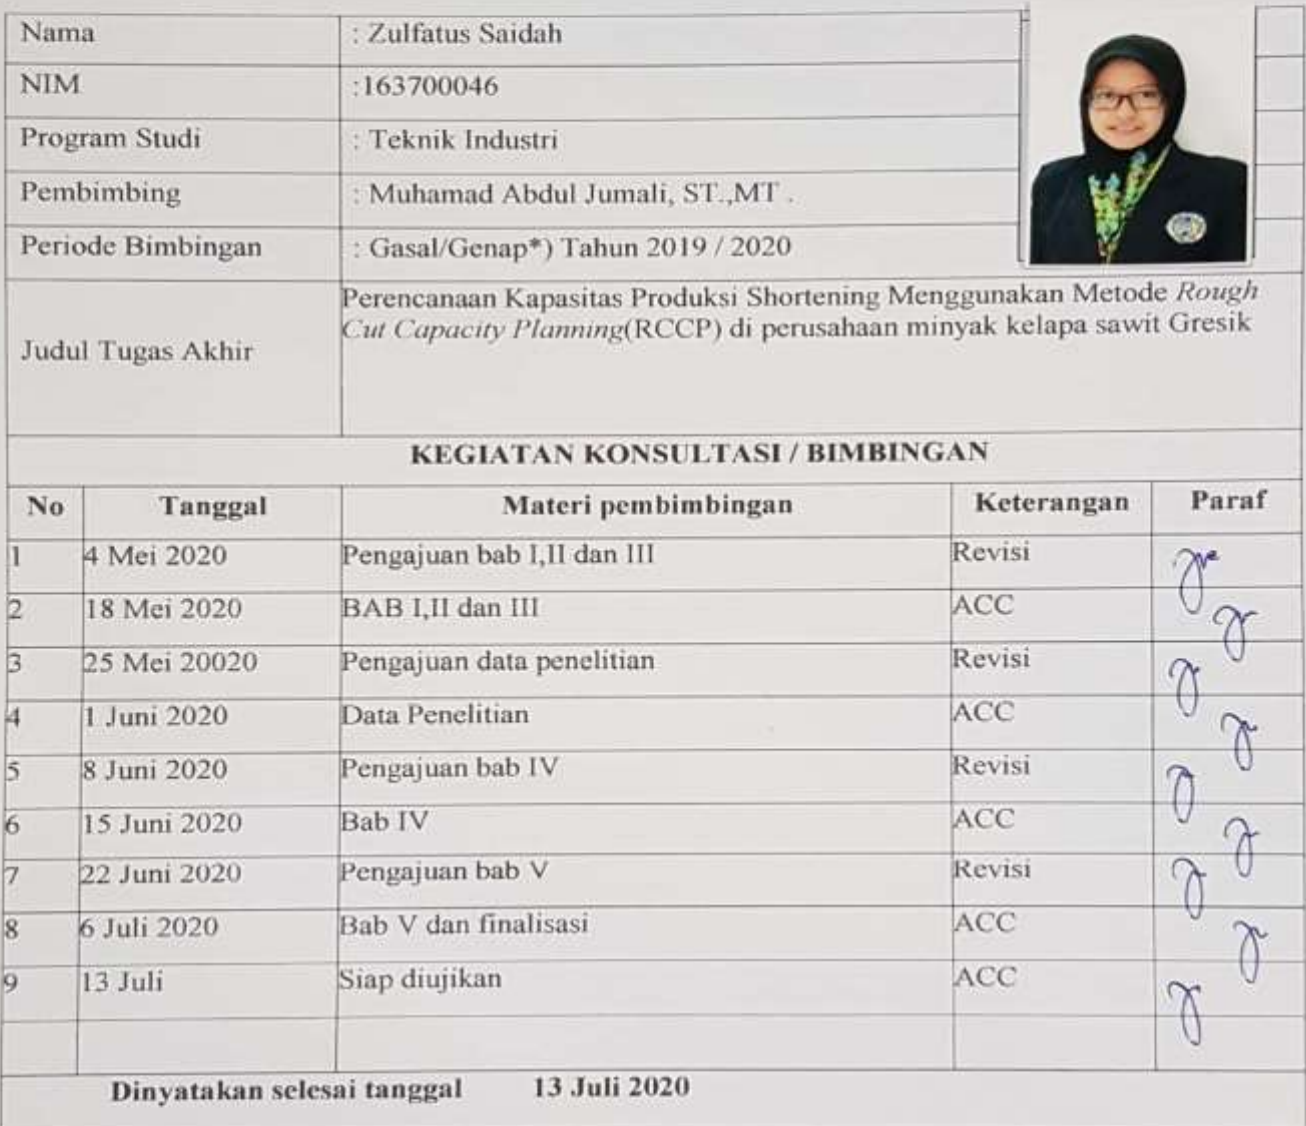 Nama : Zulfatus Saidah
NIM :163700046
Program Studi : Teknik Industri
Pembimbing : Muhamad Abdul Jumali, ST.,MT .
Periode Bimbingan : Gasal/Genap*) Tahun 2019 / 2020
Judul Tugas Akhir
Perencanaan Kapasitas Produksi Shortening Menggunakan Metode Rough
Cut Capacity Planning(RCCP) di perusahaan minyak kelapa sawit Gresik
KEGIATAN KONSULTASI / BIMBINGAN
No Tanggal Materi pembimbingan Keterangan Paraf
1 4 Mei 2020 Pengajuan bab I,II dan III Revisi
2 18 Mei 2020 BAB I,II dan III ACC
3 25 Mei 20020 Pengajuan data penelitian Revisi
4 1 Juni 2020 Data Penelitian ACC
5 8 Juni 2020 Pengajuan bab IV Revisi
6 15 Juni 2020 Bab IV ACC
7 22 Juni 2020 Pengajuan bab V Revisi
8 6 Juli 2020 Bab V dan finalisasi ACC
9 13 Juli Siap diujikan ACC
Dinyatakan selesai tanggal 13 Juli 2020